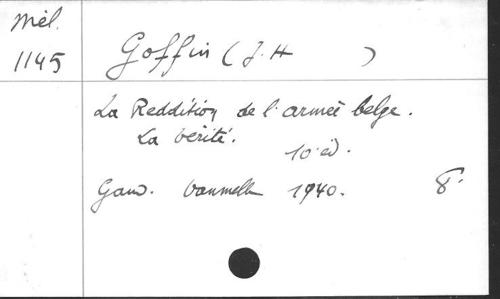 Mél.
1145
Goffin (J. H )
La Reddition de l'armée belge.
La vérité.
10e éd.
Gand. Vanmelle 1940. 8°.